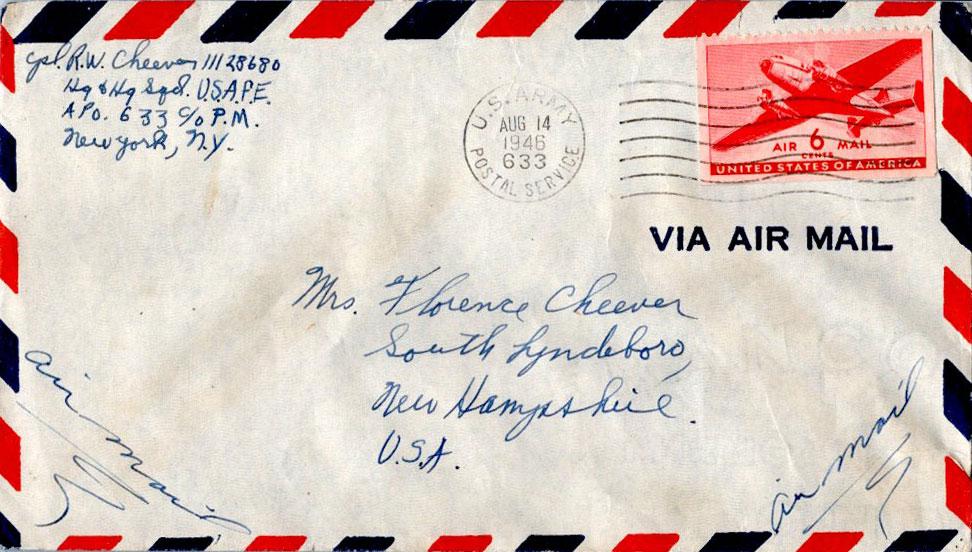 Cpl. R.W. Cheever 11128680
Hq & Hq Sqd. U.S.A.F.E.
A.P.O. 633 c/o P.M.
New York, N.Y.
U.S. ARMY
AUG 14
1946
633
POSTAL SERVICE
AIR 6 MAIL
CENTS
UNITED STATES OF AMERICA
VIA AIR MAIL
Mrs. Florence Cheever
South Lyndeboro,
New Hampshire.
U.S.A.
Air Mail
Air Mail